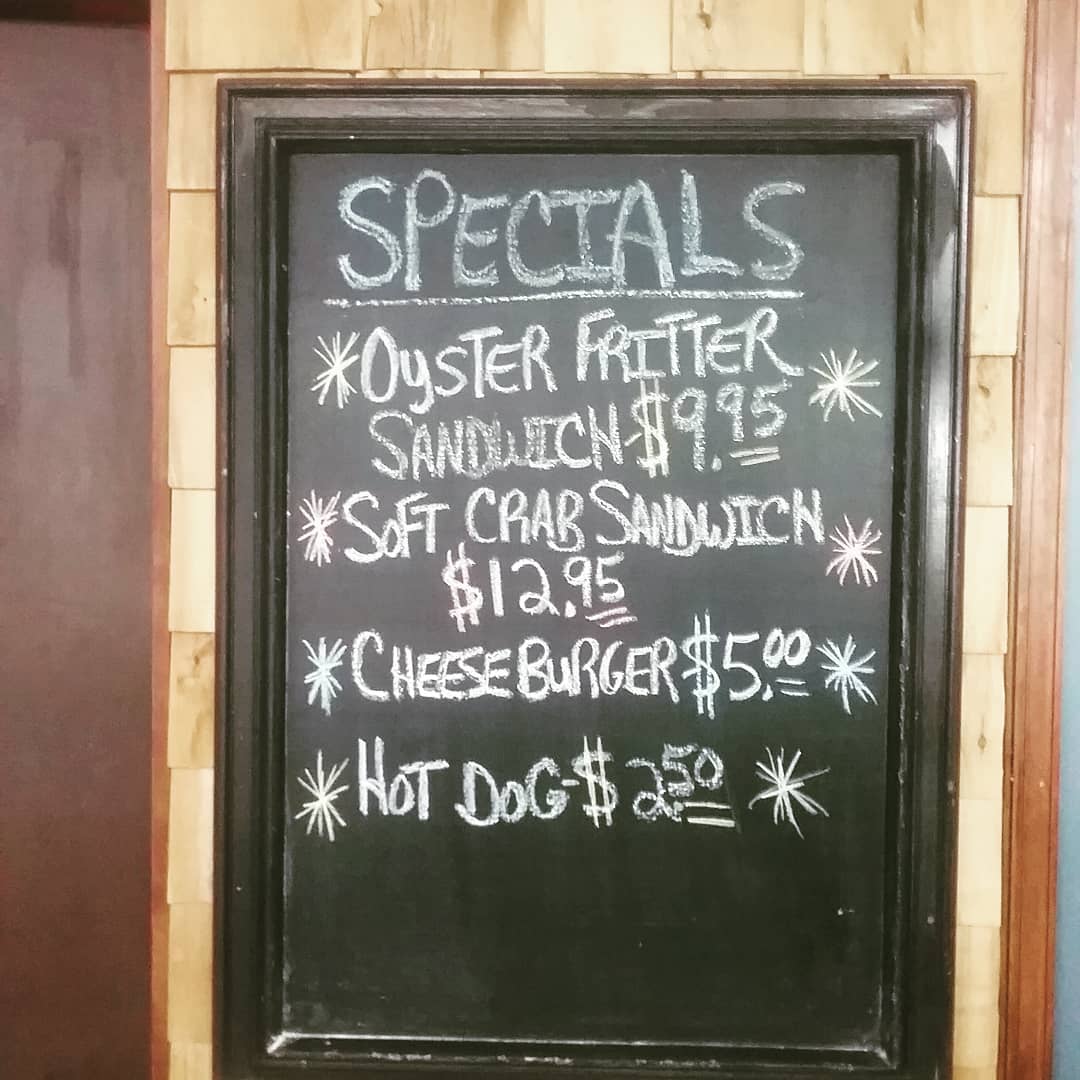 SPECIALS
*OYSTER FRITTER*
SANDWICH-$9.95
*SOFT CRAB SANDWICH*
$12.95
*CHEESEBURGER $5.00*
*HOT DOG-$2.50*